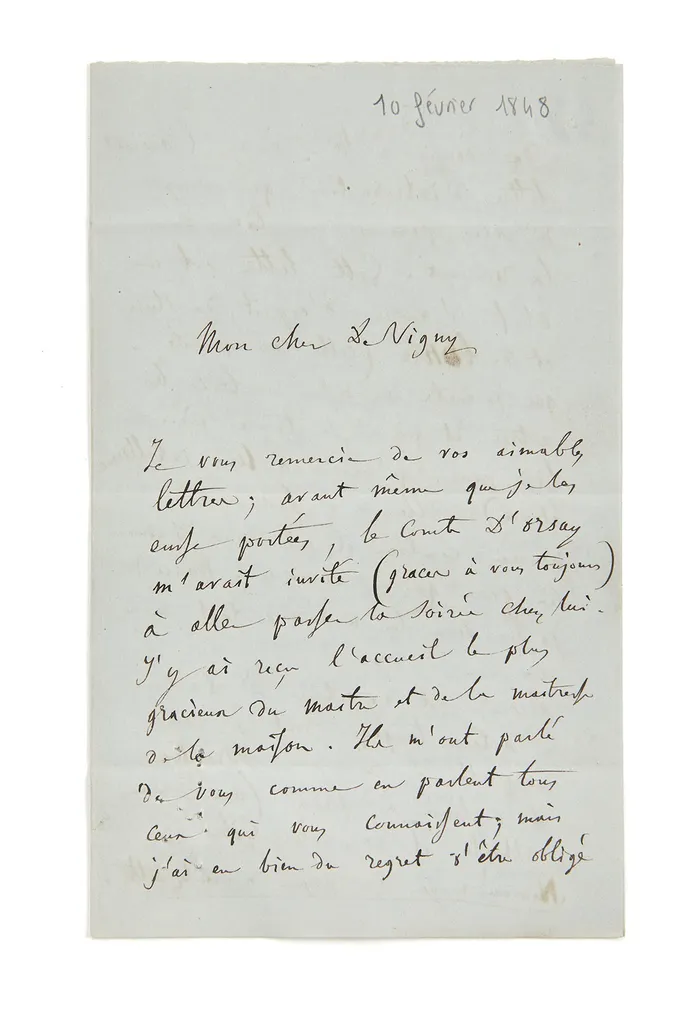 10 février 1848
Mon cher De Vigny
Je vous remercie de vos aimables
lettres; avant même que je les
eusse portées, le Comte D'orsay
m'avait invité (graces à vous toujours)
à aller passer la soirée chez lui.
J'y ai reçu l'accueil le plus
gracieux du maitre et de la maitresse
de la maison. Ils m'ont parlé
de vous comme en parlent tous
ceux qui vous connaissent; mais
j'ai eu bien du regret d'être obligé